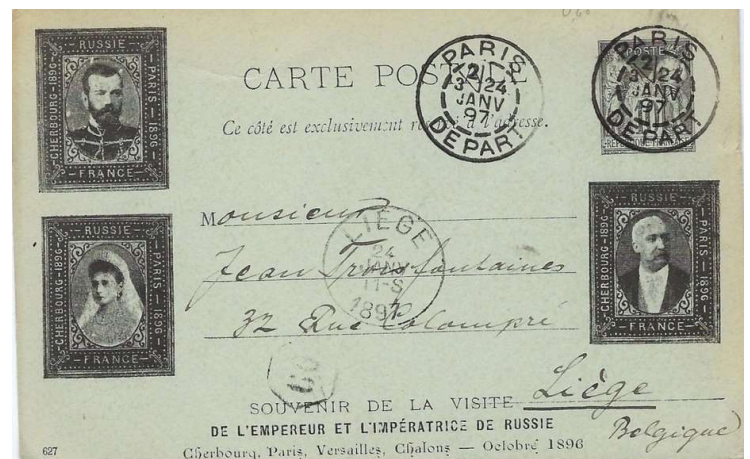 RUSSIE
CHERBOURG-1896
PARIS-1896
FRANCE
CARTE POSTALE
Ce côté est exclusivement réservé à l'adresse.
PARIS
3 24
JANV
97
DEPART
POSTE
PARIS
3 24
JANV
97
DEPART
RUSSIE
CHERBOURG-1896
PARIS-1896
FRANCE
RUSSIE
CHERBOURG-1896
PARIS-1896
FRANCE
Monsieur
LIÈGE
24
JANV
11-S
1897
Jean Troisfontaines
32 Rue Colompré
Liège
Belgique
SOUVENIR DE LA VISITE
DE L'EMPEREUR ET L'IMPÉRATRICE DE RUSSIE
Cherbourg, Paris, Versailles, Chalons — Octobre 1896
627